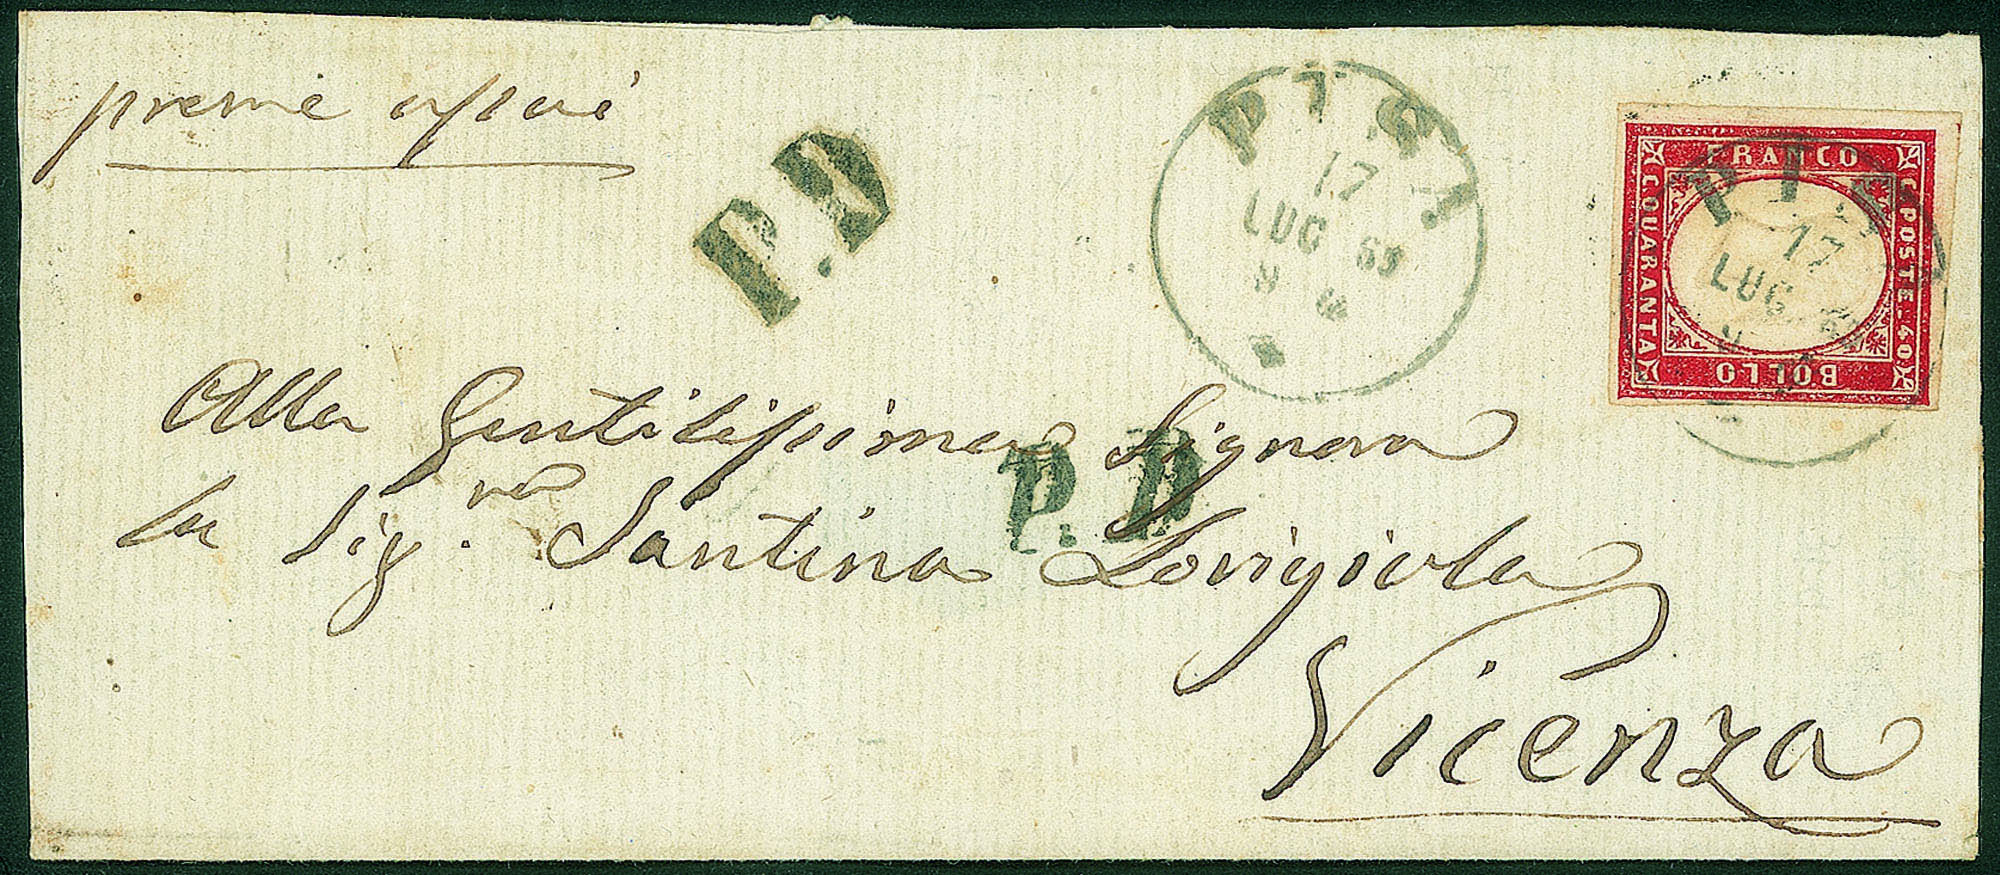 preme assai
P.D
PISA
17
LUG 63
FRANCO
C. POSTE. 40
BOLLO
C. QUARANTA
PISA
17
LUG 63
Alla Gentilissima Signora
P.D.
la Sig.ra Santina Lovigiola
Vicenza